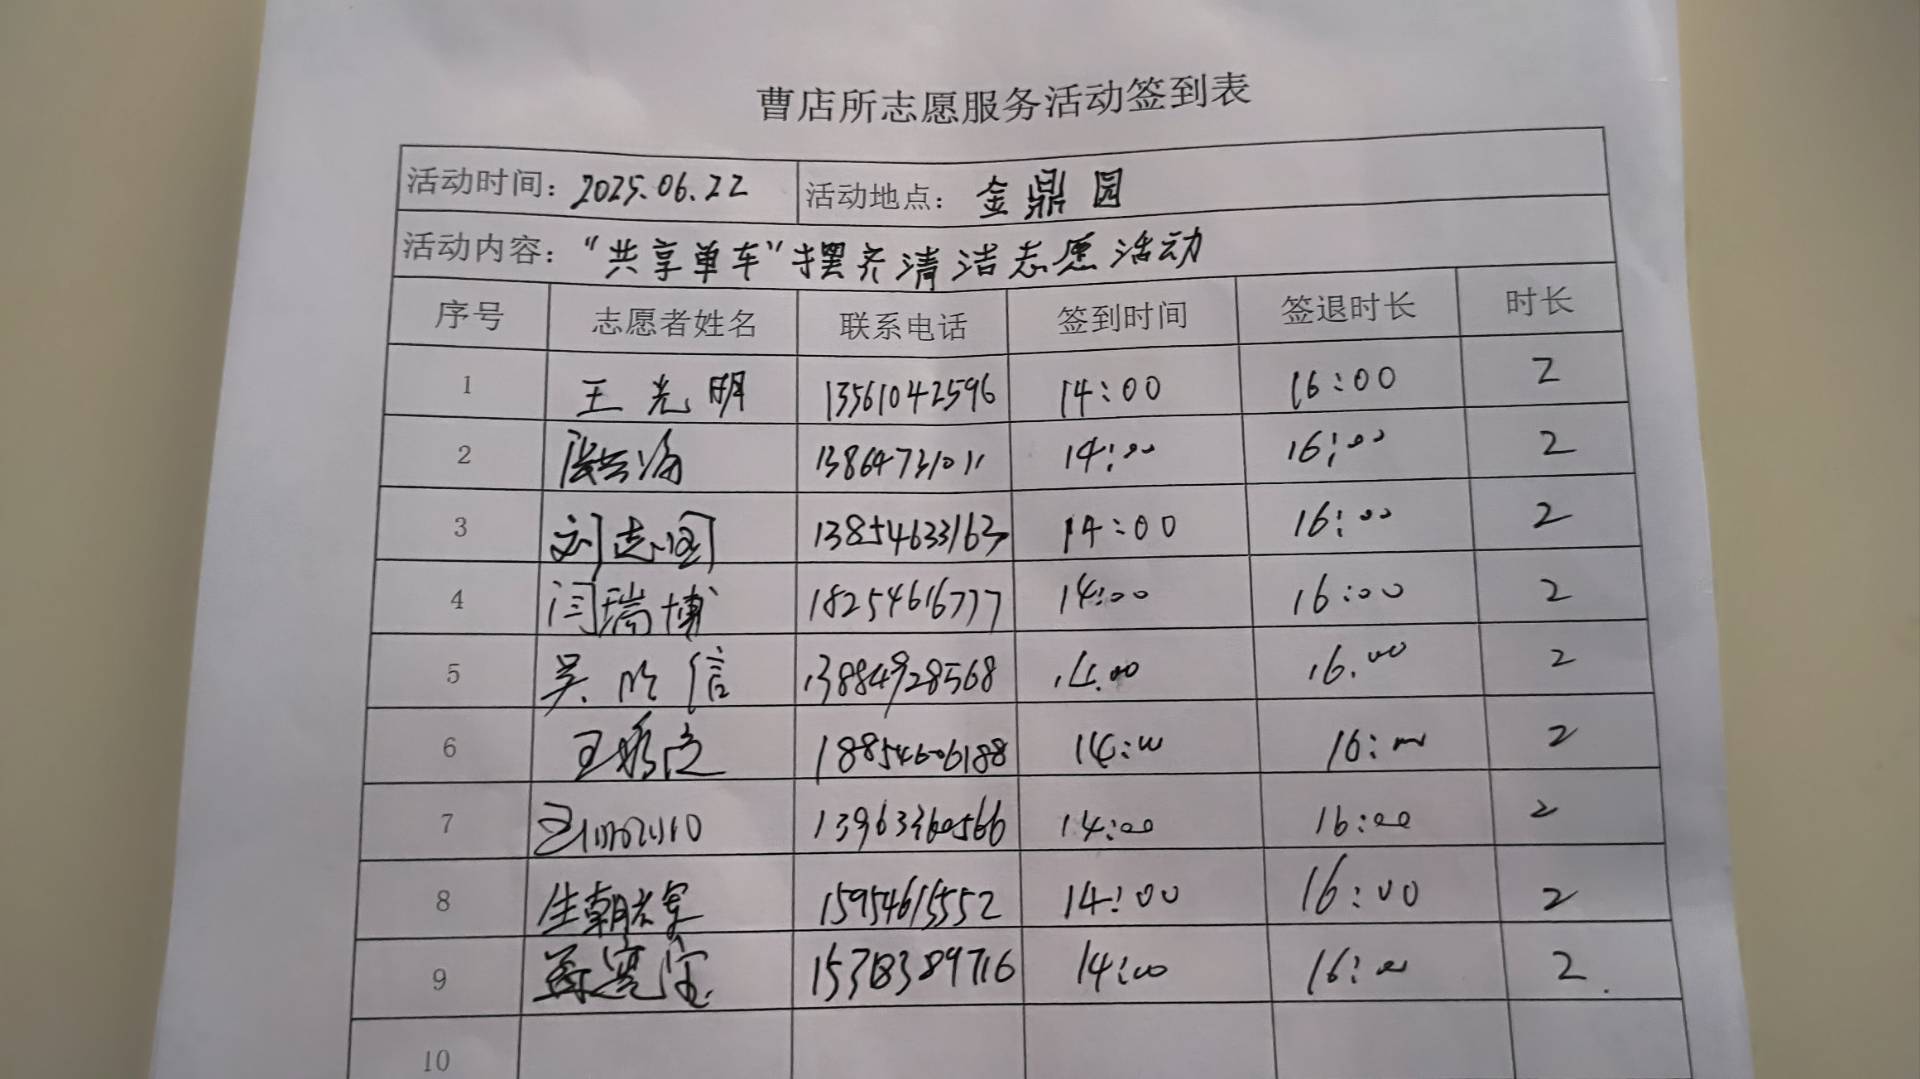 曹店所志愿服务活动签到表
活动时间：2025.06.22 活动地点：金鼎园
活动内容："共享单车"摆齐清洁志愿活动
序号 志愿者姓名 联系电话 签到时间 签退时长 时长
1 王光明 13561042596 14:00 16:00 2
2 13864731011 14:00 16:00 2
3 刘志国 13854633163 14:00 16:00 2
4 闫瑞博 18254616777 14:00 16:00 2
5 吴 信 13884928568 14:00 16:00 2
6 18854606188 14:00 16:00 2
7 13963360566 14:00 16:00 2
8 生朝 军 15954615552 14:00 16:00 2
9 14:00 16:00 2
10